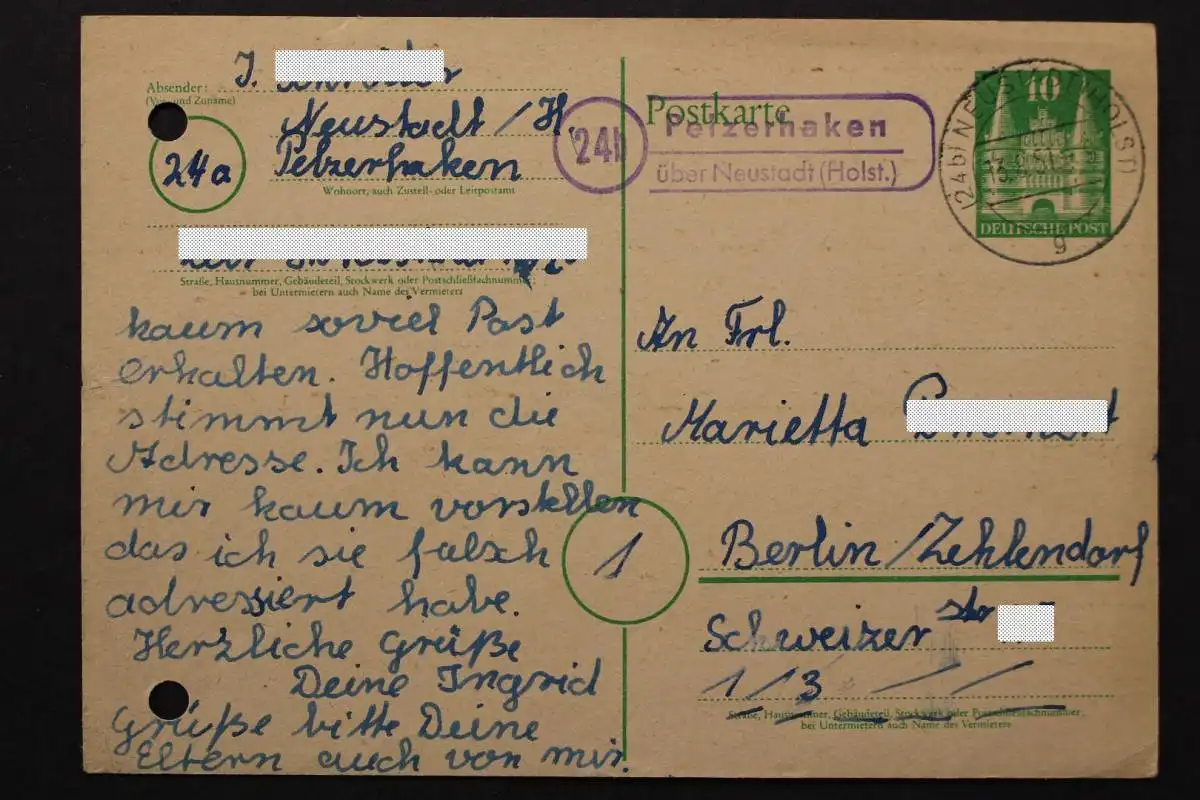 J.
Absender:
(Vor- und Zuname)
Neustadt/H.
24a
Pelzerhaken
Wohnort, auch Zustell- oder Leitpostamt
Straße, Hausnummer, Gebäudeteil, Stockwerk oder Postschließfachnummer;
bei Untermietern auch Name des Vermieters
kaum soviel Post
erhalten. Hoffentlich
stimmt nun die
Adresse. Ich kann
mir kaum vorstellen
das ich sie falsch
adressiert habe.
Herzliche Grüße
Deine Ingrid
Grüße bitte Deine
Eltern auch von mir.
1
Postkarte
24b
Pelzerhaken
über Neustadt (Holst.)
10
DEUTSCHE POST
(24b) NEUSTADT (HOLST)
g
An Frl.
Marietta
Berlin/Zehlendorf
Schweizer Str
1/3
Straße, Hausnummer, Gebäudeteil, Stockwerk oder Postschließfachnummer;
bei Untermietern auch Name des Vermieters